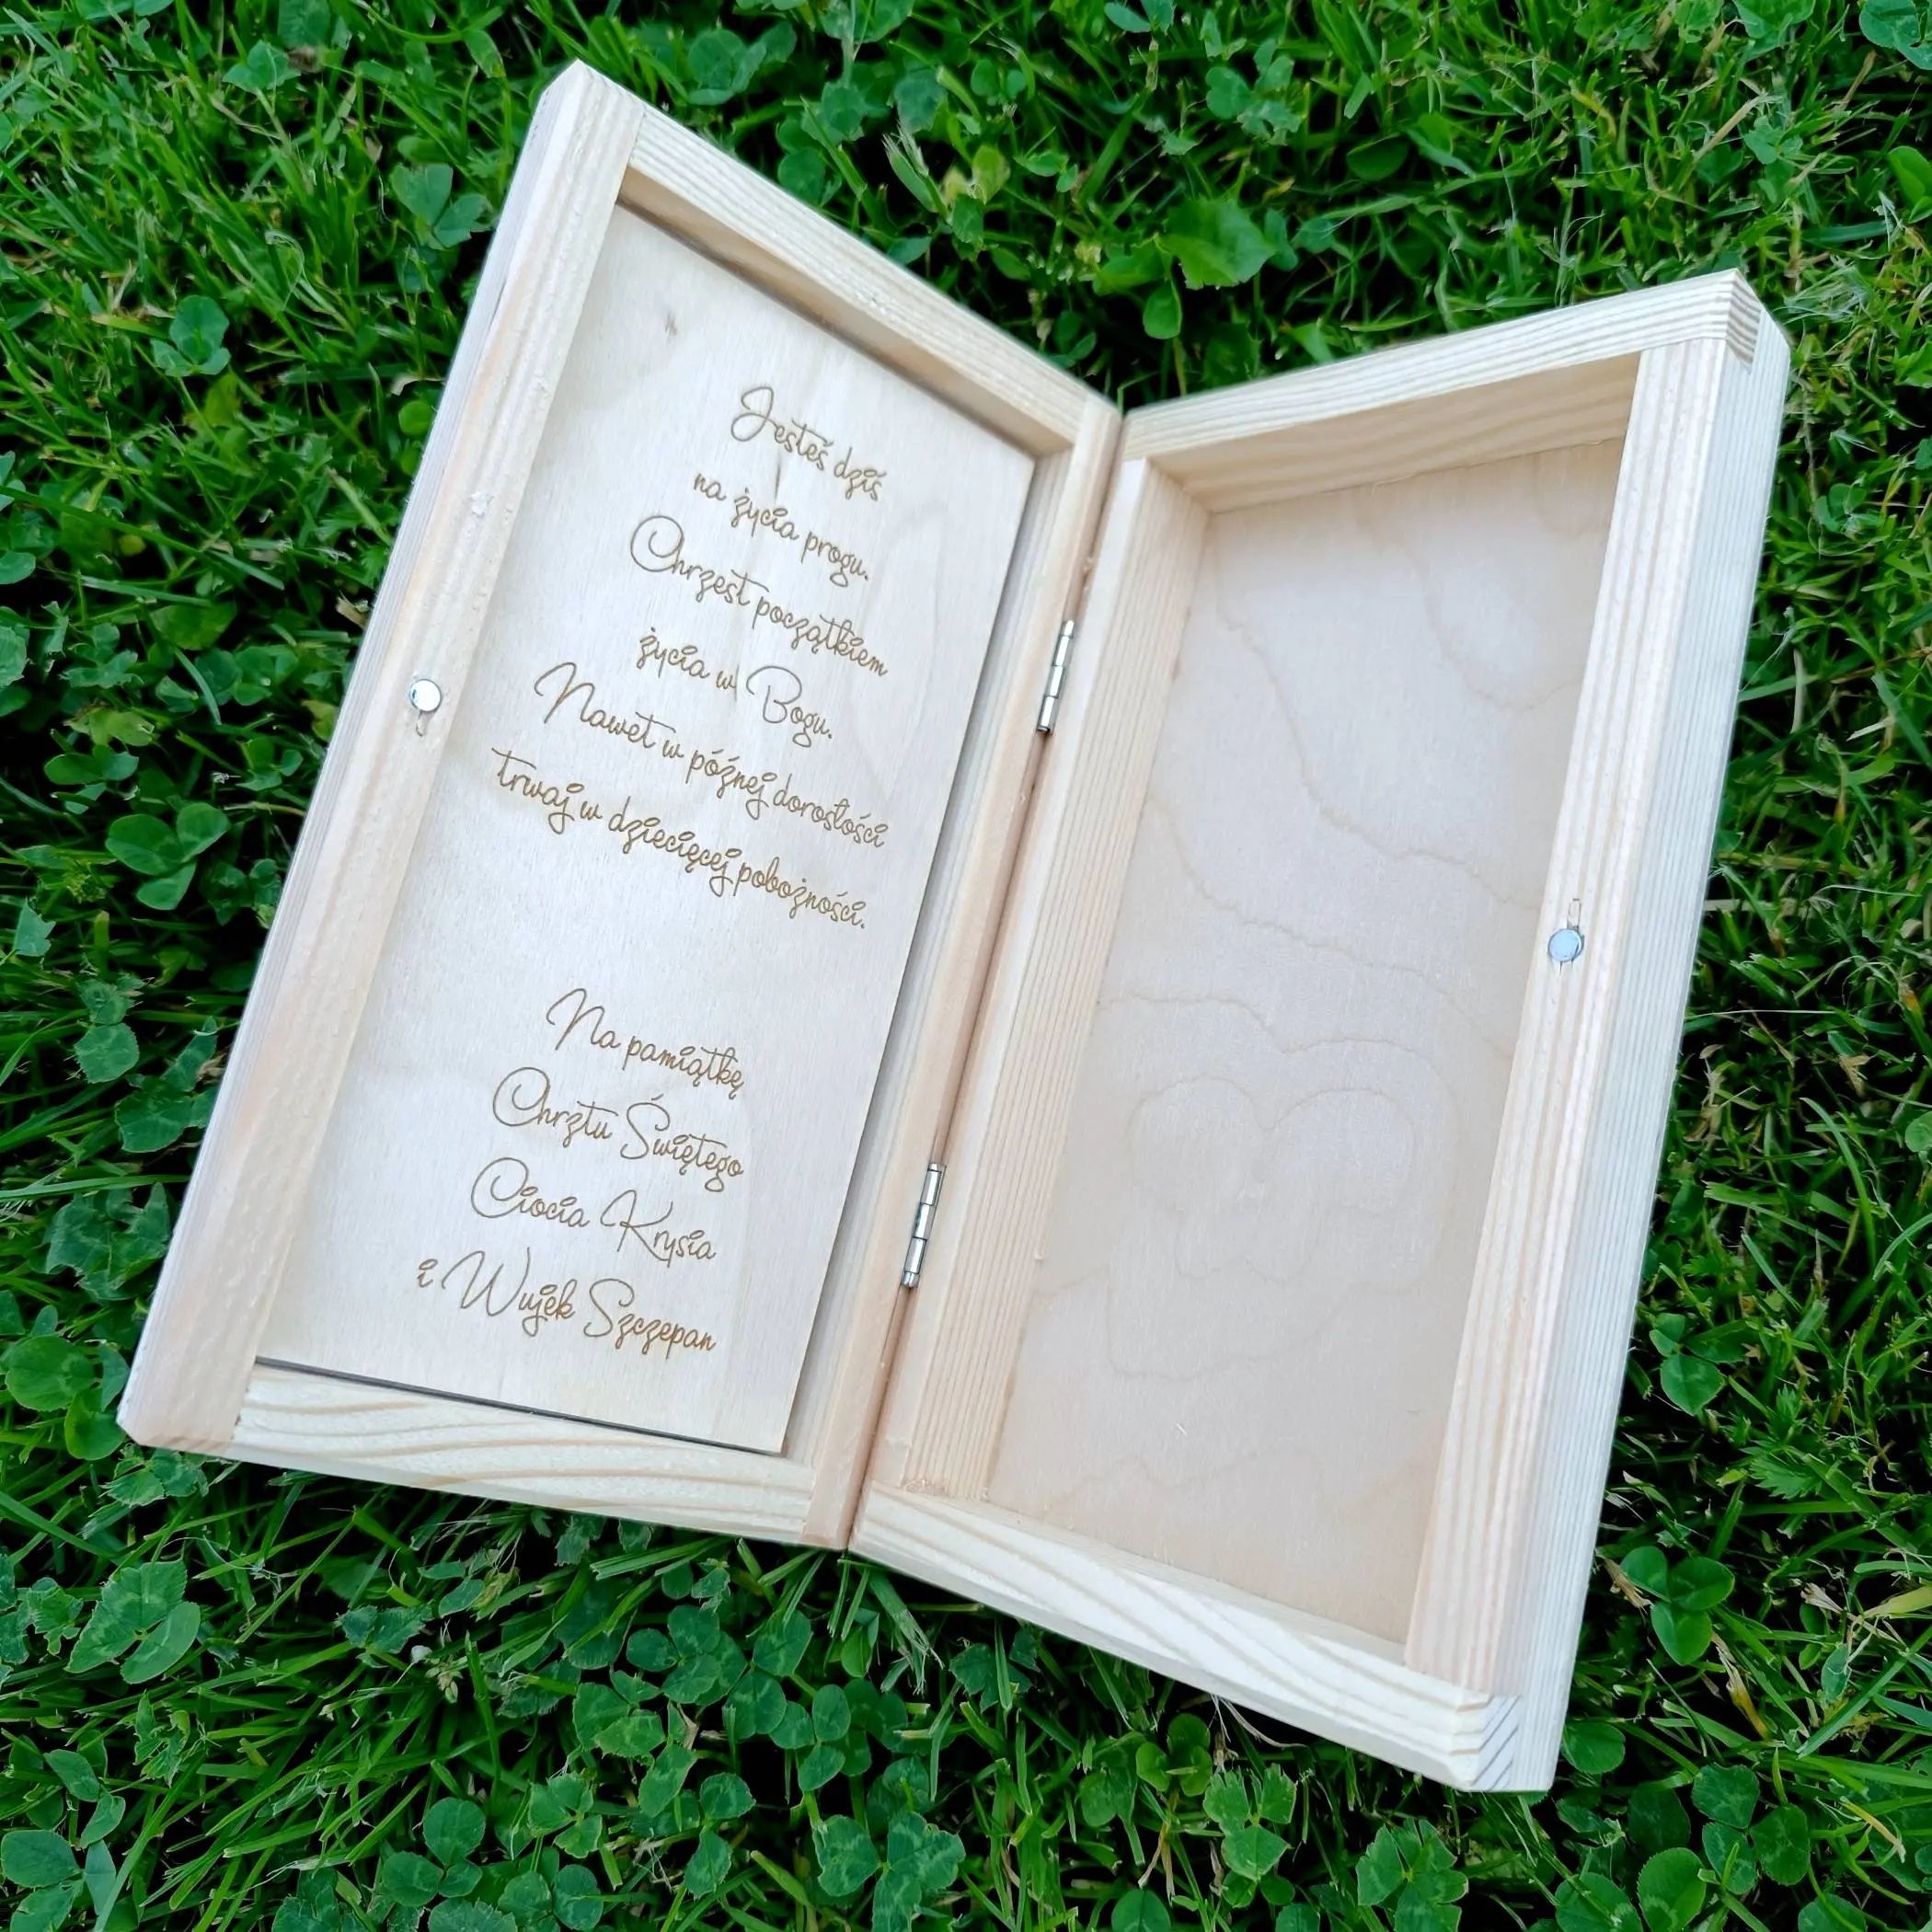 Jesteś dziś
na życia progu.
Chrzest początkiem
życia w Bogu.
Nawet w późnej dorosłości
trwaj w dziecięcej pobożności.
Na pamiątkę
Chrztu Świętego
Ciocia Krysia
i Wujek Szczepan